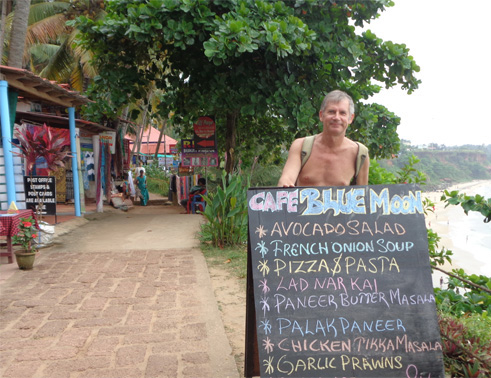 CAFE BLUE MOON
* AVOCADO SALAD
* FRENCH ONION SOUP
* PIZZA & PASTA
* LAD NAR KAI
* PANEER BUTTER MASALA
* PALAK PANEER
* CHICKEN TIKKA MASALA
* GARLIC PRAWNS
POST OFFICE
STAMPS &
POST CARDS
ARE AVAILABLE